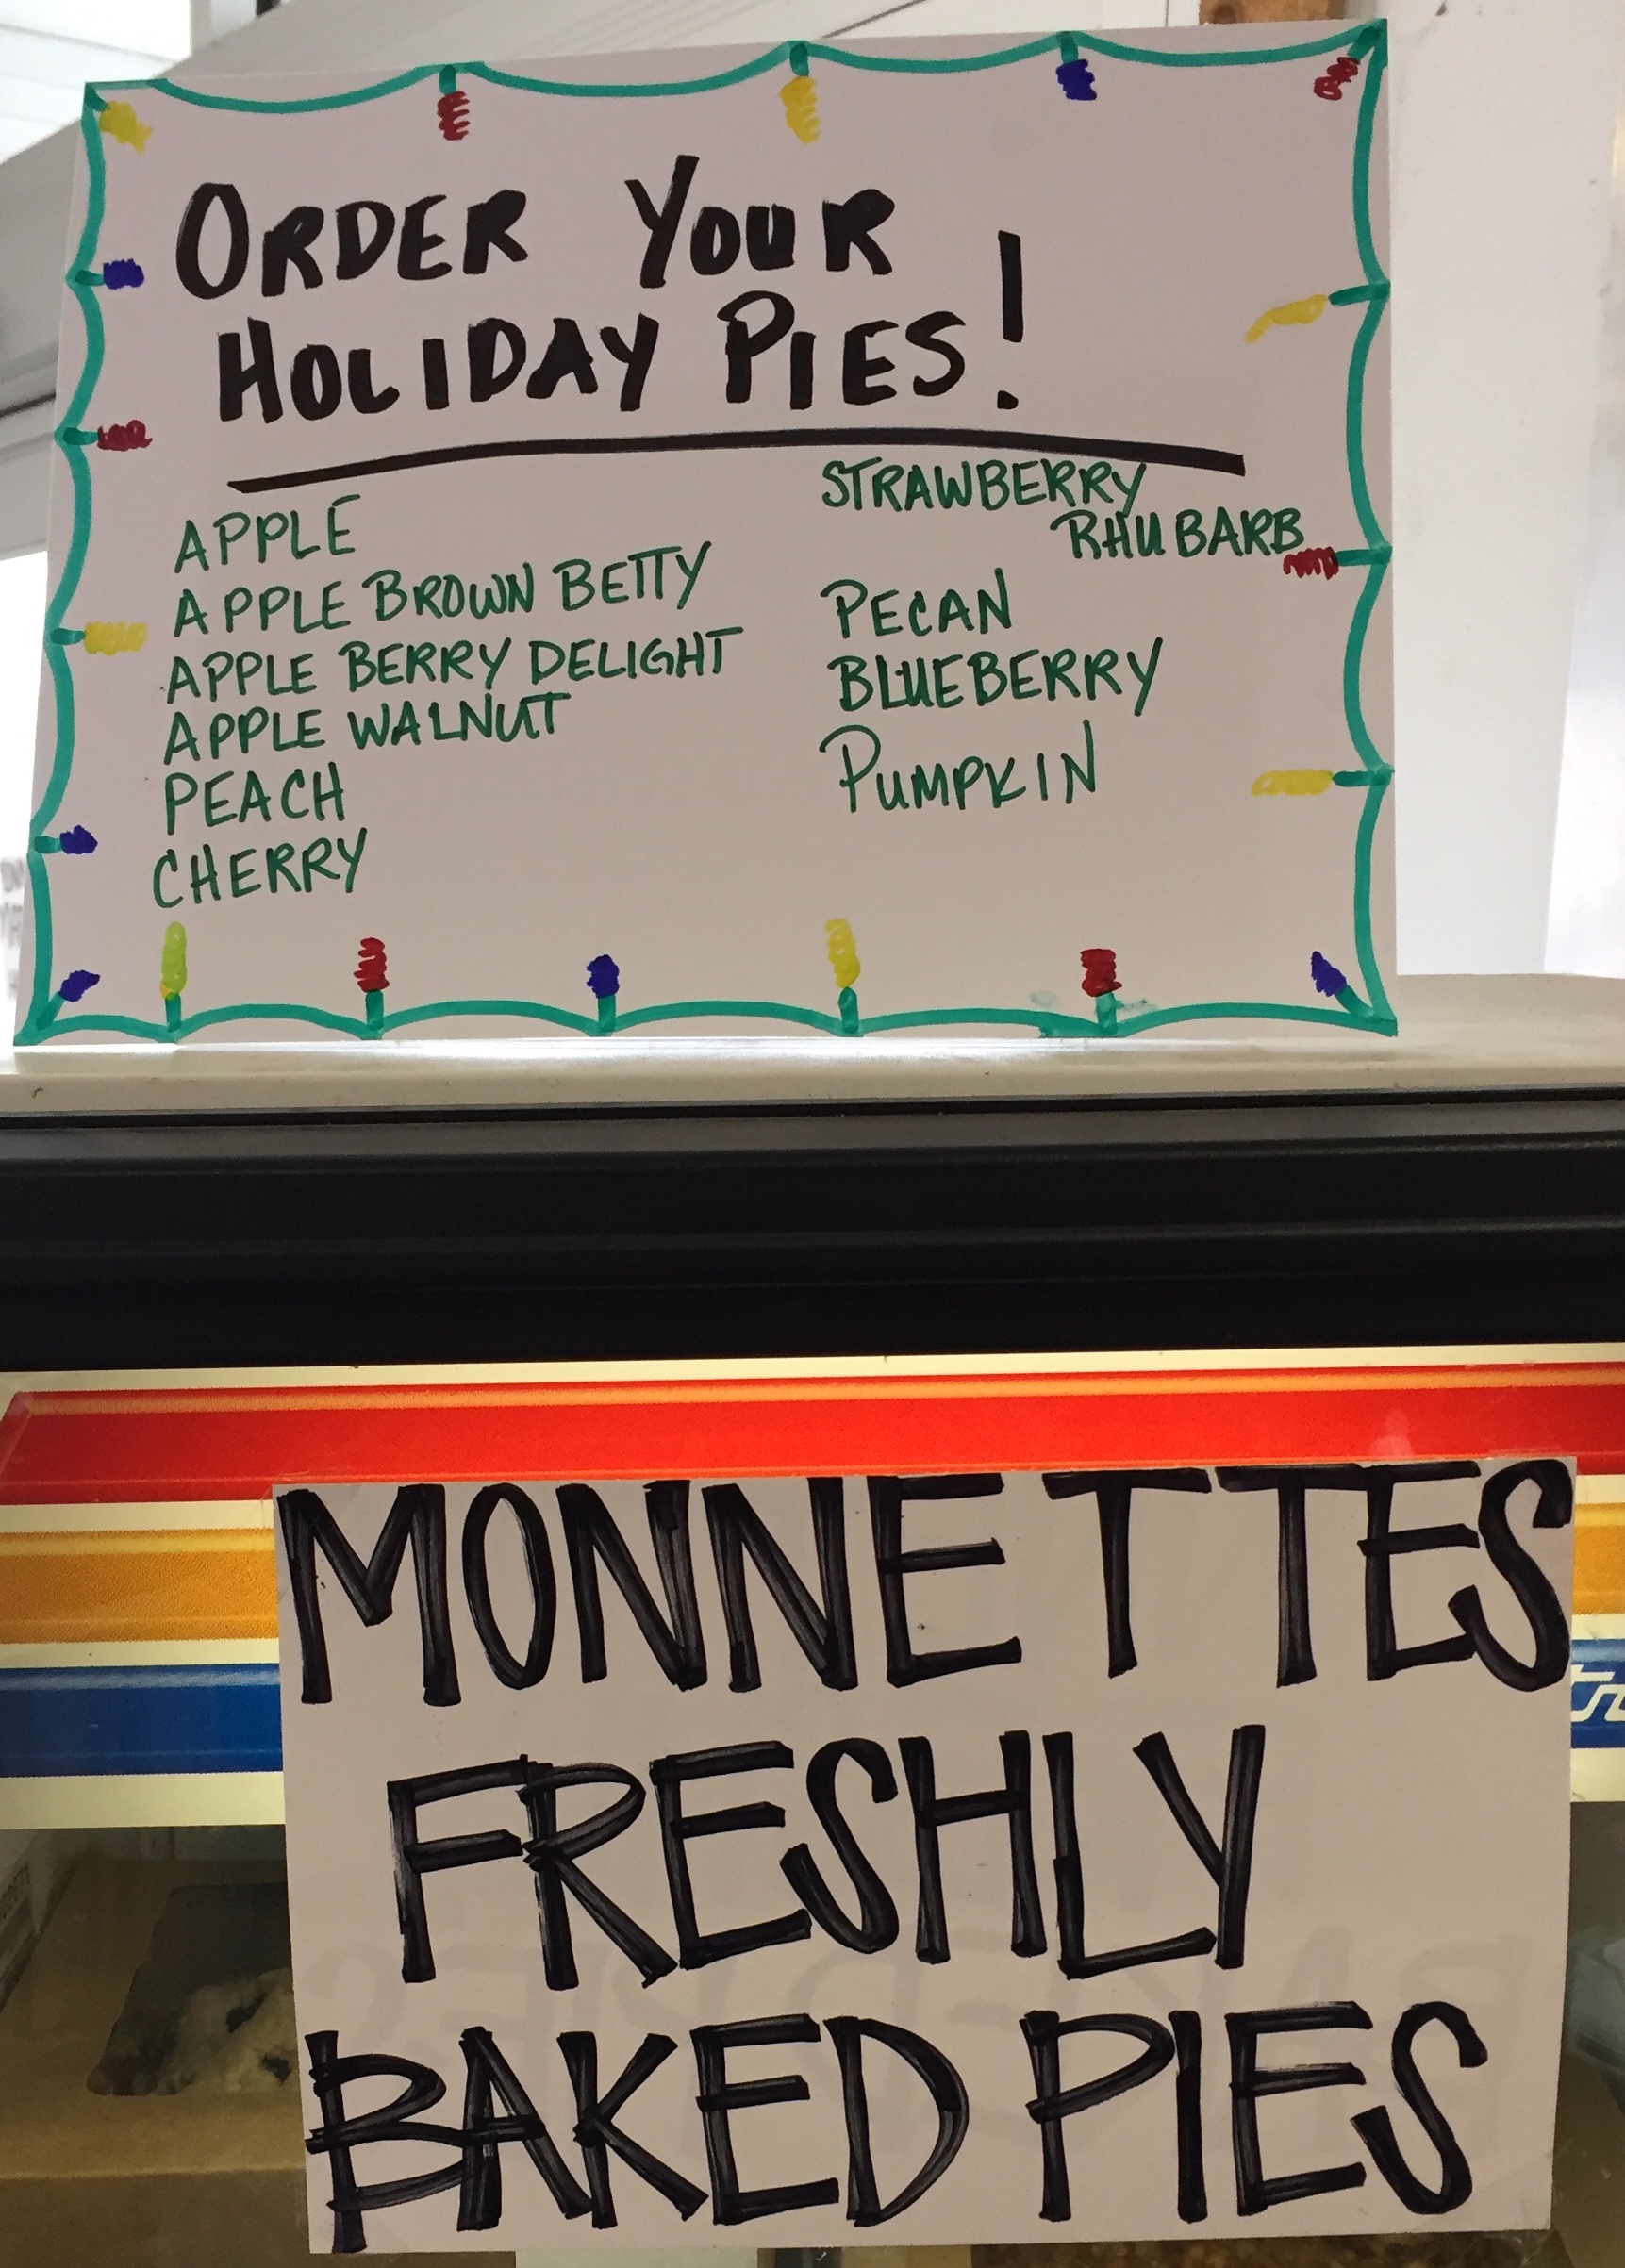 ORDER YOUR
HOLIDAY PIES!
APPLE
APPLE BROWN BETTY
APPLE BERRY DELIGHT
APPLE WALNUT
PEACH
CHERRY
STRAWBERRY
RHUBARB
PECAN
BLUEBERRY
PUMPKIN
MONNETTES
FRESHLY
BAKED PIES